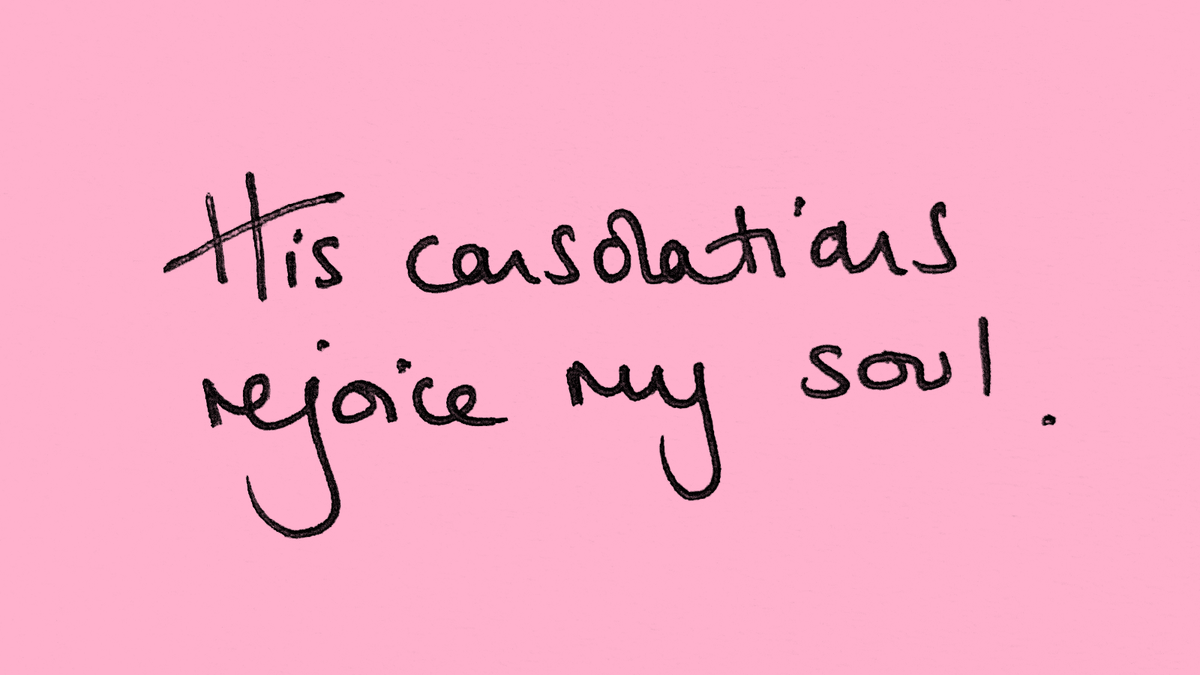 His consolations
rejoice my soul.